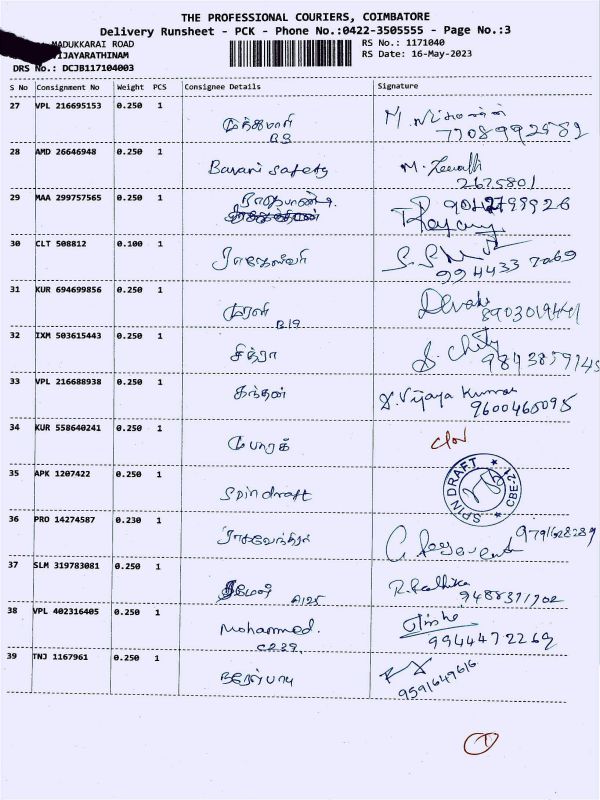 THE PROFESSIONAL COURIERS, COIMBATORE
Delivery Runsheet - PCK - Phone No.:0422-3505555 - Page No.:3
MADUKKARAI ROAD
RS No.: 1171040
VIJAYARATHINAM
RS Date: 16-May-2023
DRS No.: DCJB117104003
S No Consignment No Weight PCS Consignee Details Signature
27 VPL 216695153 0.250 1 முத்துமாரி M.
B9 7708992582
28 AMD 26646948 0.250 1 Bavani safety M.
2675801
29 MAA 299757565 0.250 1
30 CLT 508812 0.100 1 ராஜேஸ்வரி S.S.M
994433 7069
31 KUR 694699856 0.250 1 முரளி Devaki
B19
32 IXM 503615443 0.250 1 சித்ரா S.
33 VPL 216688938 0.250 1 கந்தன் S.Vijaya Kumar
9600465095
34 KUR 558640241 0.250 1 முபாரக்
35 APK 1207422 0.250 1 Spin draft SPIN DRAFT ★ CBE-21 ★
36 PRO 14274587 0.230 1 ராகவேந்திரா
37 SLM 319783081 0.250 1 R.Radhika
A125 9488371702
38 VPL 402316405 0.250 1 Mohammed.
C239. 9944472269
39 TNJ 1167961 0.250 1
9591649616
1